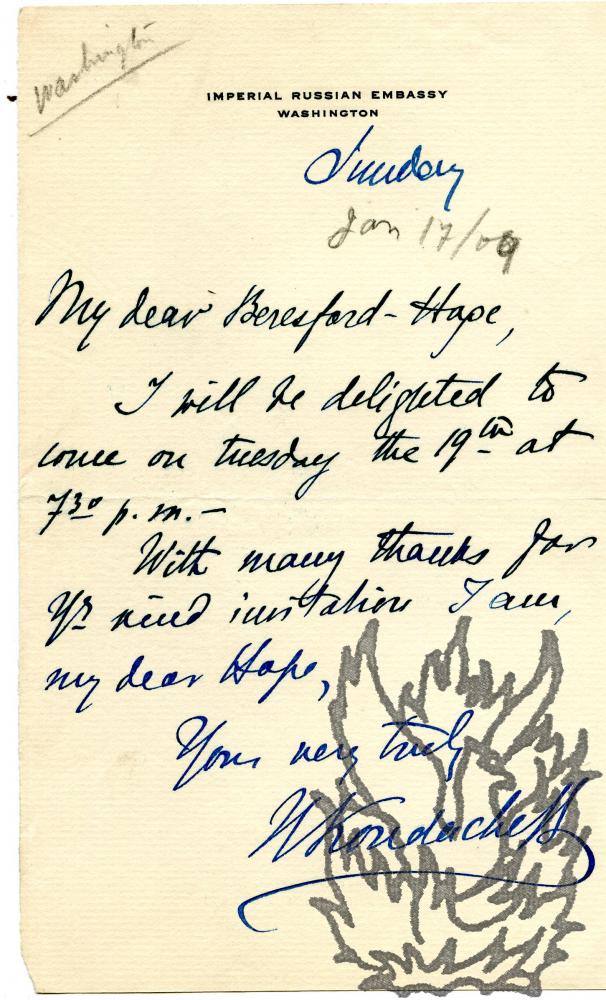 Washington
IMPERIAL RUSSIAN EMBASSY
WASHINGTON
Sunday
Jan 17/09
My dear Beresford-Hope,
I will be delighted to
come on tuesday the 19th at
7 30 p.m.-
With many thanks for
Yr kind invitation I am,
my dear Hope,
Yours very truly
Kroudacheff